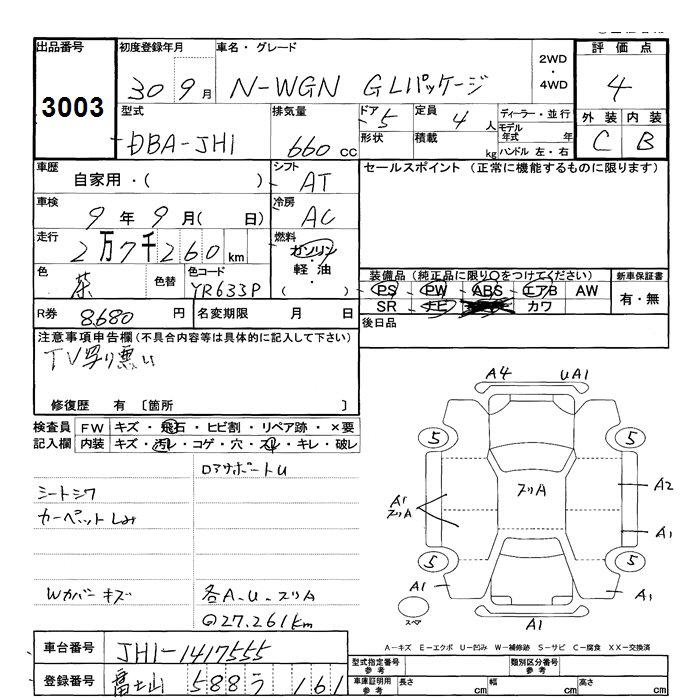 出品番号
3003
初度登録年月
30 9月
車名・グレード
N-WGN GLパッケージ
2WD
・
4WD
評価点
4
外装 内装
C B
型式
DBA-JH1
排気量
660cc
ドア 5
形状
定員 4人
積載 kg
ディーラー・並行
モデル年式 年
ハンドル 左・右
車歴
自家用・( )
シフト
AT
セールスポイント(正常に機能するものに限ります)
車検
9年9月( 日)
冷房
AC
走行
2万7千260km
燃料
ガソリン
・
軽油
・
( )
色
茶
色替
色コード
YR633P
装備品(純正品に限り○をつけてください)
PS PW ABS エアB AW
SR ナビ カワ
新車保証書
有・無
R券 8,680円
名変期限 月 日
後日品
注意事項申告欄(不具合内容等は具体的に記入して下さい)
TV写り悪い
修復歴 有 〔箇所 〕
検査員 FW キズ・飛石・ヒビ割・リペア跡・×要
記入欄 内装 キズ・汚レ・コゲ・穴・スレ・キレ・破レ
ロアサポートU
シートシワ
カーペットしみ
Wカバーキズ
各A.U.スリA
◎27.261km
A4 UA1
5 5
スリA
A1
スリA
A2
A1
5 5
A1 A1
スペア
A1
A-キズ E-エクボ U-凹み W-補修跡 S-サビ C-腐食 XX-交換済
車台番号
JH1-1417555
登録番号
富士山 588う 161
型式指定番号
参考
類別区分番号
参考
車庫証明用
参考
長さ cm
幅 cm
高さ cm